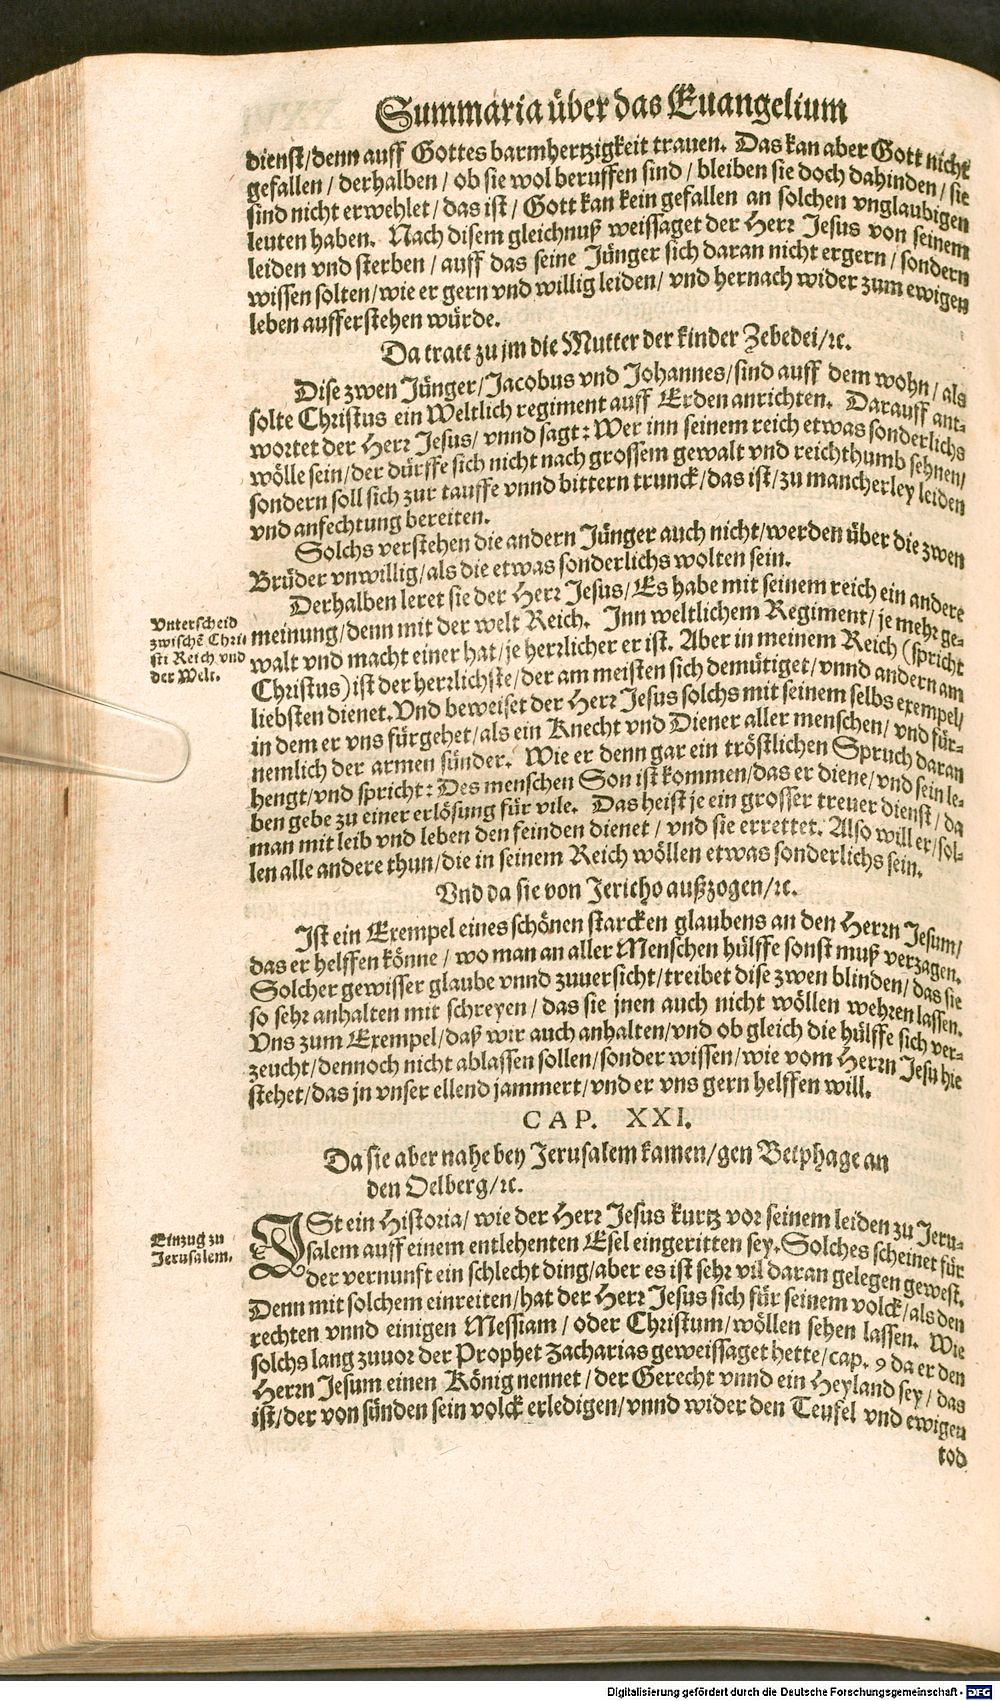 Summaria über das Euangelium
dienst/denn auff Gottes barmhertzigkeit trauen. Das kan aber Gott nicht
gefallen / derhalben / ob sie wol beruffen sind / bleiben sie doch dahinden / sie
sind nicht erwehlet / das ist / Gott kan kein gefallen an solchen vnglaubigen
leuten haben. Nach disem gleichnuß weissaget der Herr Jesus von seinem
leiden vnd sterben / auff das seine Jünger sich daran nicht ergern / sondern
wissen solten/wie er gern vnd willig leiden/ vnd hernach wider zum ewigen
leben aufferstehen würde.
Da tratt zu jm die Mutter der kinder Zebedei/ꝛc.
Dise zwen Jünger/Jacobus vnd Johannes/sind auff dem wohn / als
solte Christus ein Weltlich regiment auff Erden anrichten. Darauff ant-
wortet der Herr Jesus/ vnnd sagt: Wer inn seinem reich etwas sonderlichs
wölle sein/der dürffe sich nicht nach grossem gewalt vnd reichthumb sehnen/
sondern soll sich zur tauffe vnnd bittern trunck/das ist/zu mancherley leiden
vnd anfechtung bereiten.
Solchs verstehen die andern Jünger auch nicht/werden über die zwen
Brüder vnwillig/als die etwas sonderlichs wolten sein.
Derhalben leret sie der Herr Jesus/Es habe mit seinem reich ein andere
meinung/denn mit der welt Reich. Inn weltlichem Regiment/je mehr ge-
walt vnd macht einer hat/je herrlicher er ist. Aber in meinem Reich (spricht
Christus) ist der herrlichste/der am meisten sich demütiget/vnnd andern am
liebsten dienet.Vnd beweiset der Herr Jesus solchs mit seinem selbs exempel/
in dem er vns fürgehet/als ein Knecht vnd Diener aller menschen/ vnd für-
nemlich der armen sünder. Wie er denn gar ein tröstlichen Spruch daran
hengt/vnd spricht: Des menschen Son ist kommen/das er diene/vnd sein le-
ben gebe zu einer erlösung für vile. Das heist je ein grosser treuer dienst / da
man mit leib vnd leben den feinden dienet / vnd sie errettet. Also will er/sol-
len alle andere thun/die in seinem Reich wöllen etwas sonderlichs sein.
Vnterscheid
zwischē Chri
sti Reich vnd
der Welt.
Vnd da sie von Jericho außzogen/ꝛc.
Ist ein Exempel eines schönen starcken glaubens an den Herrn Jesum/
das er helffen könne / wo man an aller Menschen hülffe sonst muß verzagen.
Solcher gewisser glaube vnnd zuuersicht/treibet dise zwen blinden/ das sie
so sehr anhalten mit schreyen / das sie jnen auch nicht wöllen wehren lassen.
Vns zum Exempel/daß wir auch anhalten/vnd ob gleich die hülffe sich ver-
zeucht/dennoch nicht ablassen sollen/sonder wissen/wie vom Herrn Jesu hie
stehet/das jn vnser ellend jammert/vnd er vns gern helffen will.
CAP. XXI.
Da sie aber nahe bey Jerusalem kamen/gen Betphage an
den Oelberg/ꝛc.
Einzug zu
Jerusalem.
ISt ein Historia/ wie der Herr Jesus kurtz vor seinem leiden zu Jeru-
salem auff einem entlehenten Esel eingeritten sey. Solches scheinet für
der vernunft ein schlecht ding/aber es ist sehr vil daran gelegen gewest.
Denn mit solchem einreiten/hat der Herr Jesus sich für seinem volck/als den
rechten vnnd einigen Messiam / oder Christum/wöllen sehen lassen. Wie
solchs lang zuuor der Prophet Zacharias geweissaget hette/cap. 9 da er den
Herrn Jesum einen König nennet / der Gerecht vnnd ein Heyland sey / das
ist/der von sünden sein volck erledigen/vnnd wider den Teufel vnd ewigen
tod
Digitalisierung gefördert durch die Deutsche Forschungsgemeinschaft - DFG